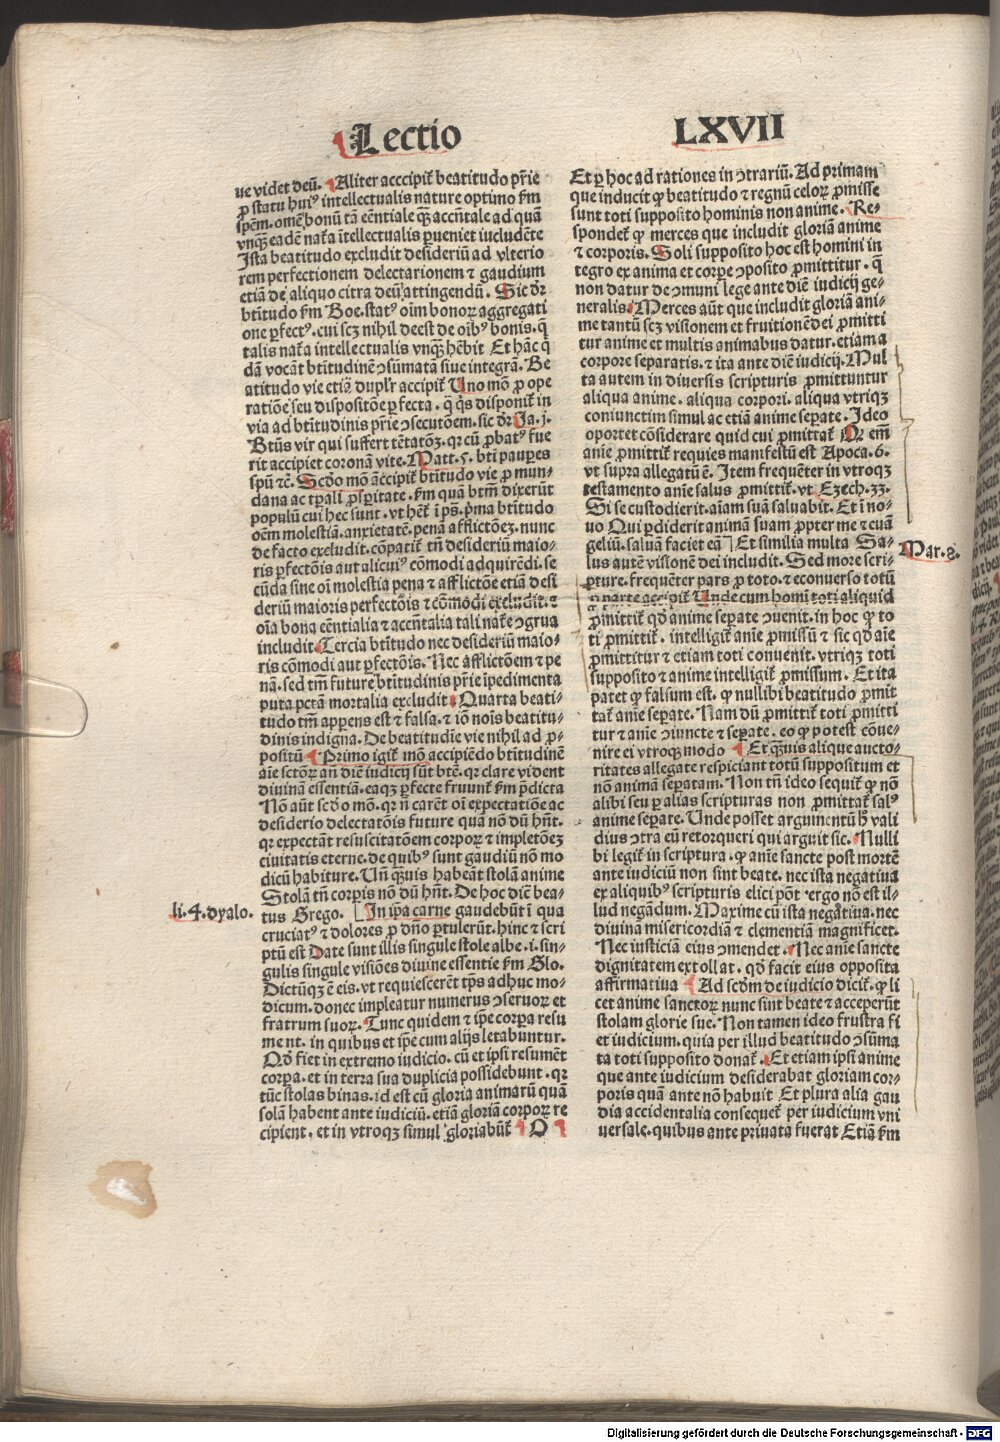 Lectio
LXVII
ue videt deū. Aliter acccipit᷑ beatitudo ꝓrie
ꝓ statu huiꝰ intellectualis nature optimo ẜm
spēm. omē bonū tā eēntiale qꝫ accn̄tale ad quā
vnqꝫ eadē nat᷑a ītellectualis ꝑueniet iucludēte
Ista beatitudo excludit desideriū ad vlterio
rem perfectionem delectarionem ⁊ gaudium
etiā de aliquo citra deū attingendū. Sic dr̄
btītudo ẜm Boe. statꝰ oīm bonoꝝ aggregati
one ꝑfectꝰ. cui scꝫ nihil deest de oībꝰ bonis. q̄
talis nat᷑a intellectualis vnqꝫ hēbit Et hāc q̄
dā vocāt btītudinē ↄsūmatā siue integrā. Be
atitudo vie etiā dupl̄r accipit᷑ Uno mō ꝓ ope
ratiōe seu dispositōe ꝑfecta. q̄ q̇s disponit᷑ in
via ad btītudinis ꝓrie ↄsecutōem. sic dr̄ Ja.j.
Btūs vir qui suffert tētatōꝫ. qꝛ cū ꝓbatꝰ fue
rit accipiet coronā vite. Matt.5. btī pauꝑes
spū ⁊c̄. Scd̄o mō accipit᷑ btītudo vie ꝓ mun-
dana ac tꝑali ꝓsꝑitate. ẜm quā btm̄ dixerūt
populū cui hec sunt. vt hēt᷑ ī ps̄. pͥma btītudo
oēm molestiā. anxietatē. penā afflictōeꝫ. nunc
de facto excludit. cōpatit᷑ tn̄ desideriū maio-
ris ꝑfectōis aut alicuiꝰ cōmodi adquirēdi. se
cūda sine oī molestia pena ⁊ afflictōe etiā desi
deriū maioris perfectōis ⁊ cōmodi excludit. ⁊
oīa bona eēntialia ⁊ accn̄talia tali nat᷑e ↄgrua
includit. Tercia btītudo nec desideriū maio-
ris cōmodi aut ꝑfectōis. Nec afflictōem ⁊ pe
nā. sed tm̄ future btītudinis ꝓrie īpedimenta
puta pctā mortalia excludit. Quarta beati-
tudo tm̄ apparens est ⁊ falsa. ⁊ iō nōis beatitu-
dinis indigna. De beatitudīe vie nihil ad ꝓ-
positū. Primo igit᷑ mō accipiēdo btītudinē
aīe sctōꝝ an̄ diē iudicij sūt btē. qꝛ clare vident
diuinā essentiā. eaqꝫ ꝑfecte fruunt᷑ ẜm p̄dicta
Nō aūt scd̄o mō. qꝛ n̄ carēt oī expectatiōe ac
desiderio delectatōis future quā nō dū hn̄t.
qꝛ expectāt resuscitatōem corpoꝝ ⁊ impletōeꝫ
ciuitatis eterne. de quibꝰ sunt gaudiū nō mo
dicū habiture. Un̄ qꝫuis habeāt stolā anime
Stolā tn̄ corꝑis nō dū hn̄t. De hoc diē bea-
li.4.dyalo.
tus Grego. [In ip̄a carne gaudebūt ī qua
cruciatꝰ ⁊ dolores ꝓ dn̄o ꝑtulerūt. hinc ⁊ scri
ptū est Date sunt illis singule stole albe .i. sin-
gulis singule visiōes diuine essentie ẜm Glo.
Dictūqꝫ ē eis. vt requiescerēt tꝑs adhuc mo-
dicum. donec impleatur numerus ↄseruoꝝ et
fratrum suoꝝ. Tunc quidem ⁊ ip̄e corꝑa resu
ment. in quibus et ip̄e cum alijs letabuntur.
Qd̄ fiet in extremo iudicio. cū et ipsi resumēt
corꝑa. et in terra sua duplicia possidebunt. qꝛ
tūc stolas binas. id est cū gloria animarū quā
solā habent ante iudiciū. etiā gloriā corpoꝝ re
cipient. et in vtroqꝫ simul gloriabūt᷑ O
Et ꝑ hoc ad rationes in ↄtrariū. Ad primam
que inducit ꝙ beatitudo ⁊ regnū celoꝝ ꝓmisse
sunt toti supposito hominis non anime. Re-
spondet᷑ ꝙ merces que includit gloriā anime
⁊ corporis. Soli supposito hoc est homini in
tegro ex anima et corꝑe ↄposito ꝓmittitur. q̄
non datur de ↄmuni lege ante diē iudicij ge-
neralis. Merces aūt que includit gloriā ani-
me tantū scꝫ visionem et fruitionē dei ꝓmitti
tur anime et multis animabus datur. etiam a
corpore separatis. ⁊ ita ante diē iudicij. Mul
ta autem in diuersis scripturis ꝓmittuntur
aliqua anime. aliqua corpori. aliqua vtriqꝫ
coniunctim simul ac etiā anime seꝑate. Ideo
oportet cōsiderare quid cui ꝓmittat᷑ Qꝛ em̄
anīe ꝓmittit᷑ requies manifestū est Apoca.6.
vt supra allegatū ē. Item frequēter in vtroqꝫ
testamento anīe salus ꝓmittit᷑. vt Ezech.33.
Si se custodierit. aīam suā saluabit. Et ī no-
uo Qui ꝑdiderit animā suam ꝓpter me ⁊ euā
geliū. saluā faciet eā] Et similia multa Sa-
Mar.8.
lus autē visionē dei includit. Sed more scri-
pture. frequēter pars ꝓ toto. ⁊ econuerso totū
ꝓ parte accipit᷑ Unde cum homī toti aliquid
ꝓmittit᷑ qd̄ anime seꝑate ↄuenit. in hoc ꝙ to
ti ꝓmittit᷑. intelligit᷑ anīe ꝓmissū ⁊ sic qd̄ aīe
ꝓmittitur ⁊ etiam toti conuenit. vtriqꝫ toti
supposito ⁊ anime intelligit᷑ ꝓmissum. Et ita
patet ꝙ falsum est. ꝙ nullibi beatitudo ꝓmit
tat᷑ anīe seꝑate. Nam dū ꝓmittit᷑ toti ꝓmitti
tur ⁊ anīe ↄiuncte ⁊ seꝑate. eo ꝙ potest cōue-
nire ei vtroqꝫ modo Et qꝫuis alique aucto-
ritates allegate respiciant totū suppositum et
nō animā seꝑatam. Non tn̄ ideo sequit᷑ ꝙ nō
alibi seu ꝑ alias scripturas non ꝓmittat᷑ salꝰ
anime seꝑate. Unde posset argumentū ħ vali
dius ↄtra eū retorqueri qui arguit sic. Nulli
bi legit᷑ in scriptura. ꝙ anīe sancte post mortē
ante iudiciū non sint beate. nec ista negatiua
ex aliquibꝰ scripturis elici pōt ergo nō est il-
lud negādum. Maxime cū ista negatiua. nec
diuinā misericordiā ⁊ clementiā magnificet.
Nec iusticiā eius ↄmendet. Nec anīe sancte
dignitatem extollat. qd̄ facit eius opposita
affirmatiua Ad scd̄m de iudicio dicit᷑. ꝙ li
cet anime sanctoꝝ nunc sint beate ⁊ acceperūt
stolam glorie sue. Non tamen ideo frustra fi
et iudicium. quia per illud beatitudo ↄsūma
ta toti supposito donat᷑. Et etiam ipsi anime
que ante iudicium desiderabat gloriam cor-
poris quā ante nō habuit Et plura alia gau
dia accidentalia consequet᷑ per iudicium vni
uersale. quibus ante priuata fuerat Etiā ẜm
Digitalisierung gefördert durch die Deutsche Forschungsgemeinschaft - DFG